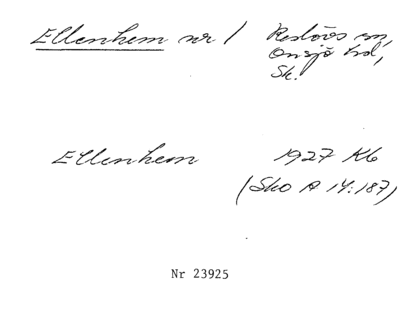 Ellenhem nr 1 Reslövs sn,
Onsjö hd,
Sk.
Ellenhem 1927 Kb
(Sko A 14:187)
Nr 23925